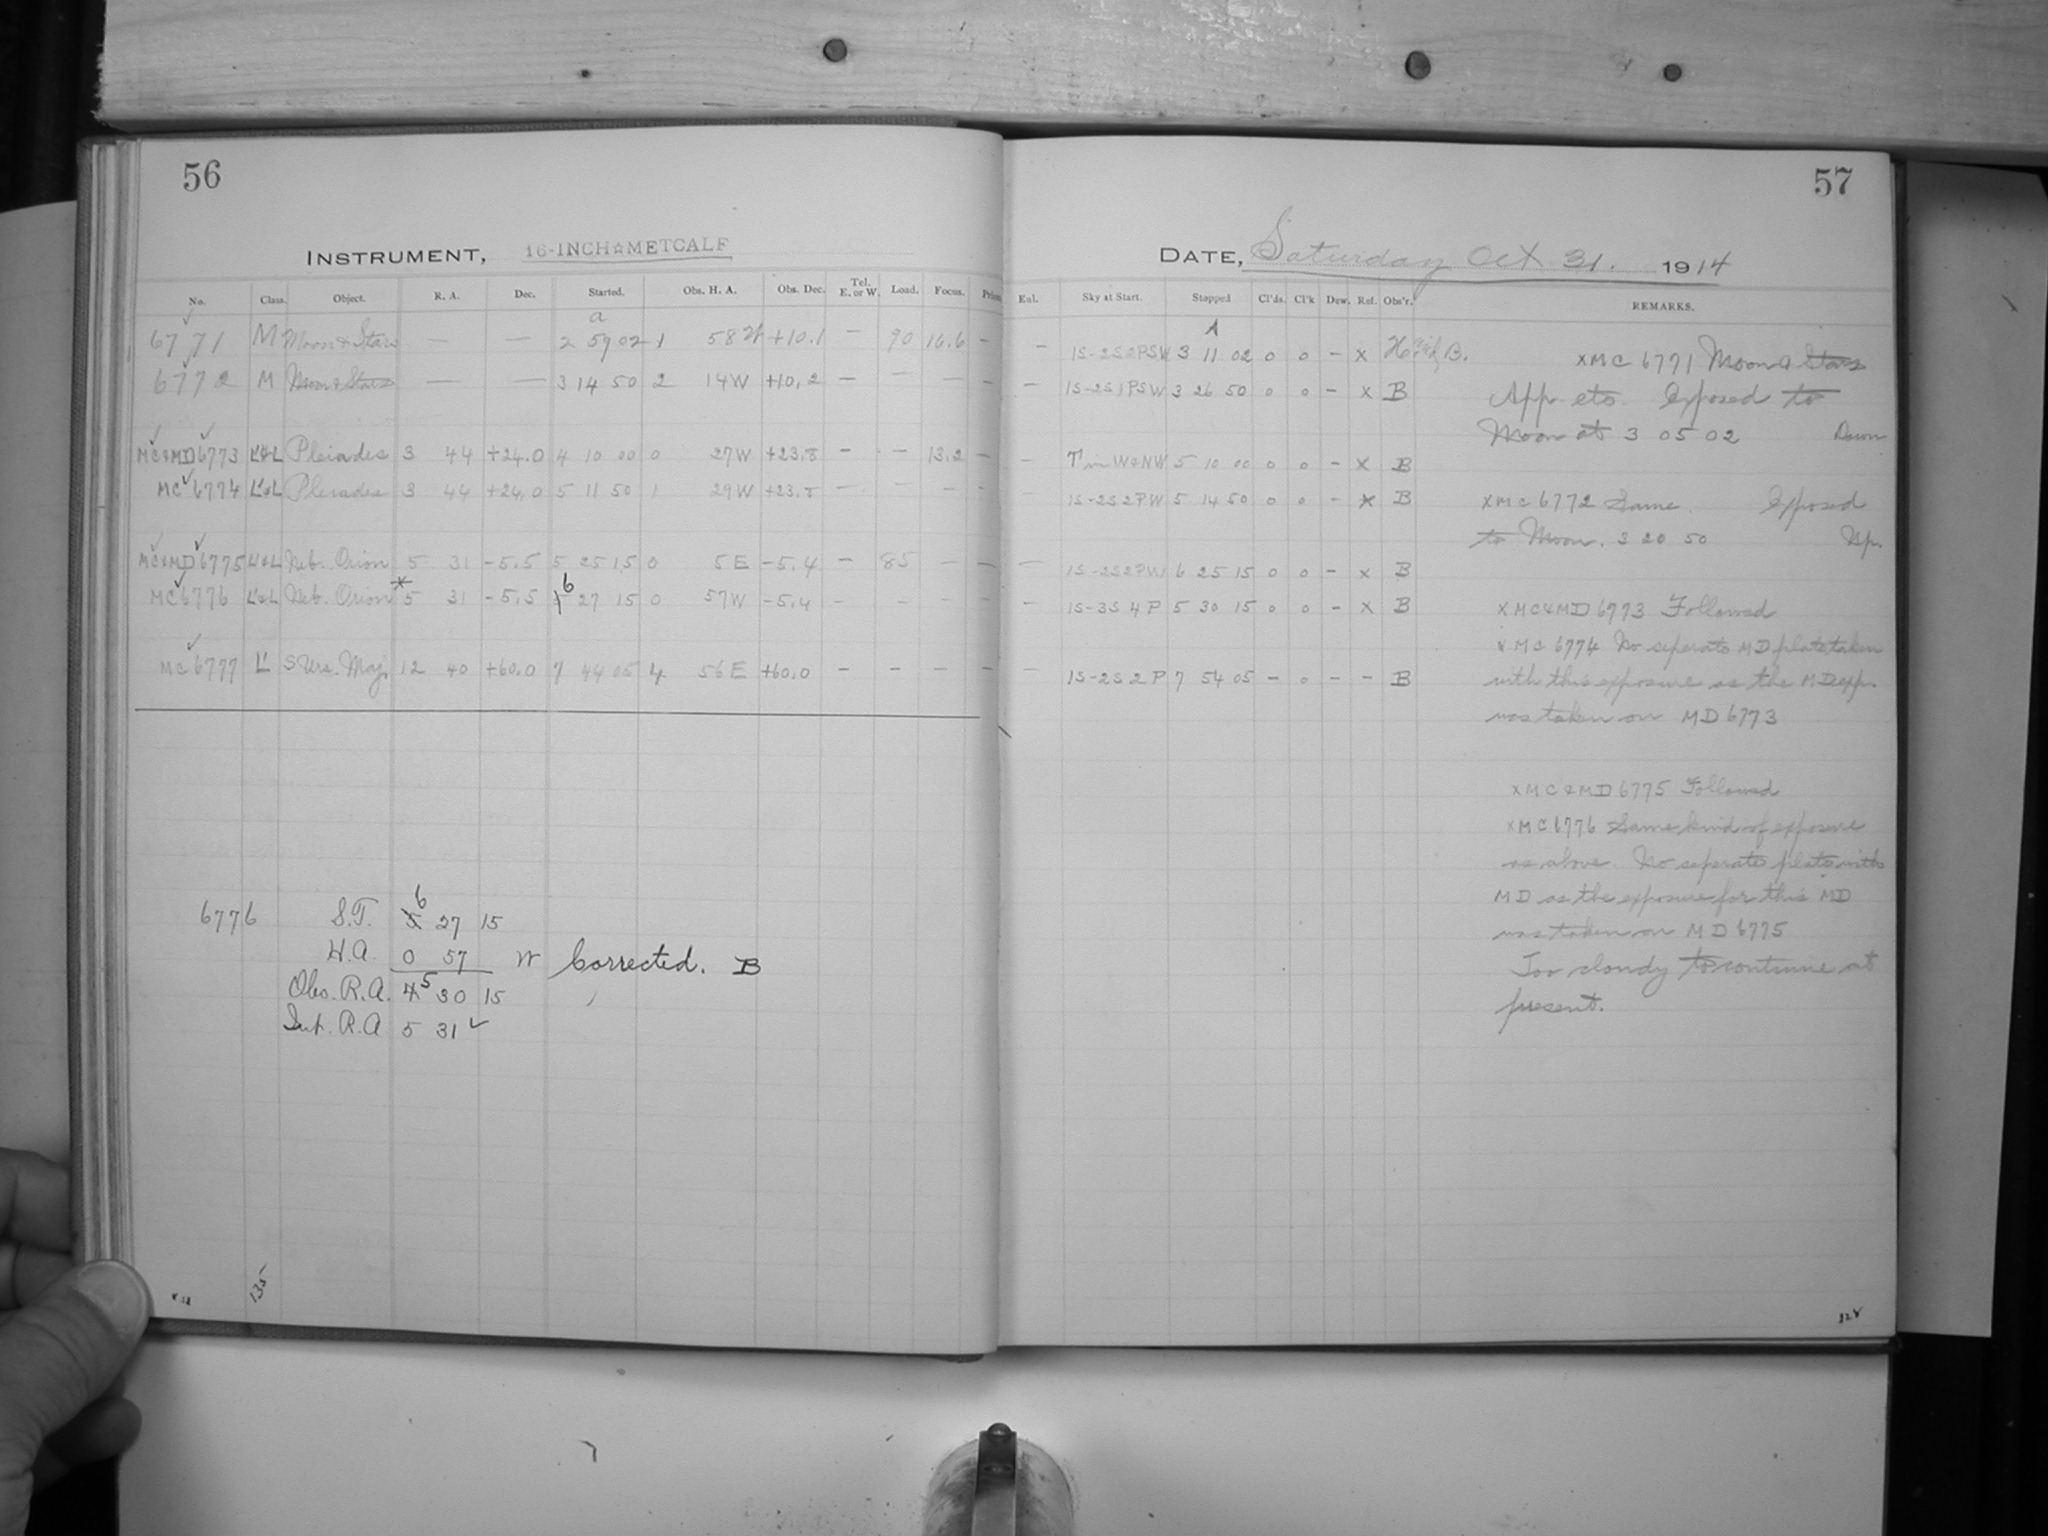 56
INSTRUMENT, 16-INCH☆METCALF
No. Class. Object. R. A. Dec. Started. Obs. H. A. Obs. Dec. Tel. E. or W. Load. Focus.
a
6771 M Moon & Stars — — 2 59 02 1 58 W +10.1 — 90 16.6 —
6772 M Moon & Stars — — 3 14 50 2 14 W +10.2 — — — —
MC&MD 6773 L'&L Pleiades 3 44 +24.0 4 10 00 0 27 W +23.8 — — 13.2 —
MC 6774 L'&L Pleiades 3 44 +24.0 5 11 50 1 29 W +23.8 — — — —
MC&MD 6775 L'&L Neb. Orion 5 31 -5.5 5 25 15 0 5 E -5.4 — 85 — —
6
MC 6776 L'&L Neb. Orion * 5 31 -5.5 27 15 0 57 W -5.4 — — — —
MC 6777 L' S Urs. Maj. 12 40 +60.0 7 44 05 4 56 E +60.0 — — — —
6
6776 S.T. 5 27 15
H.A. 0 57 W Corrected. B
Obs. R.A. 4 5 30 15
Int. R.A 5 31 ✓
135
57
DATE, Saturday Oct 31. 1914
Eul. Sky at Start. Stopped Cl'ds. Cl'k Dew. Ref. Obs'r. REMARKS.
A
— 1S-2S2PSW 3 11 02 0 0 - x B.
— 1S-2S1PSW 3 26 50 0 0 - x B
— T in W&NW 5 10 00 0 0 - x B
— 1S-2S2PW 5 14 50 0 0 - x B
— 1S-2S2PW 6 25 15 0 0 - x B
— 1S-3S4P 5 30 15 0 0 - x B
— 1S-2S2P 7 54 05 - 0 - - B
xMC 6771 Moon & Stars
App. etc. Exposed to
Moon at 3 05 02 Down
xMC 6772 Same. Exposed
to Moon. 3 20 50 Up.
xMC&MD 6773 Followed
xMC 6774 No seperate MD plate taken
with this exposure as the MD exp.
was taken on MD 6773
xMC&MD 6775 Followed
xMC 6776 Same kind of exposure
as above. No seperate plate with
MD as the exposure for this MD
was taken on MD 6775
Too cloudy to continue at
present.
128